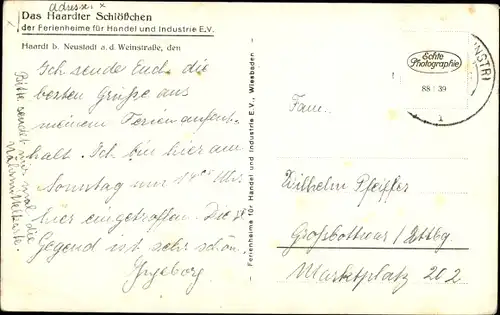 Adresse: x
Das Haardter Schlößchen
der Ferienheime für Handel und Industrie E.V.
Haardt b. Neustadt a. d. Weinstraße, den
Ich sende Euch die
besten Grüße aus
meinem Ferienaufent-
halt. Ich bin hier am
Sonntag um 14 Uhr
hier eingetroffen. Die
Gegend ist sehr schön.
Ingeborg
Bitte sendet mir mal die
Ferienheime für Handel und Industrie E.V., Wiesbaden
Echte
Photographie
88 : 39
NSTR)
1
Fam.
Wilhelm Pfeiffer
Großbottwar / Wttbg.
Marktplatz 202